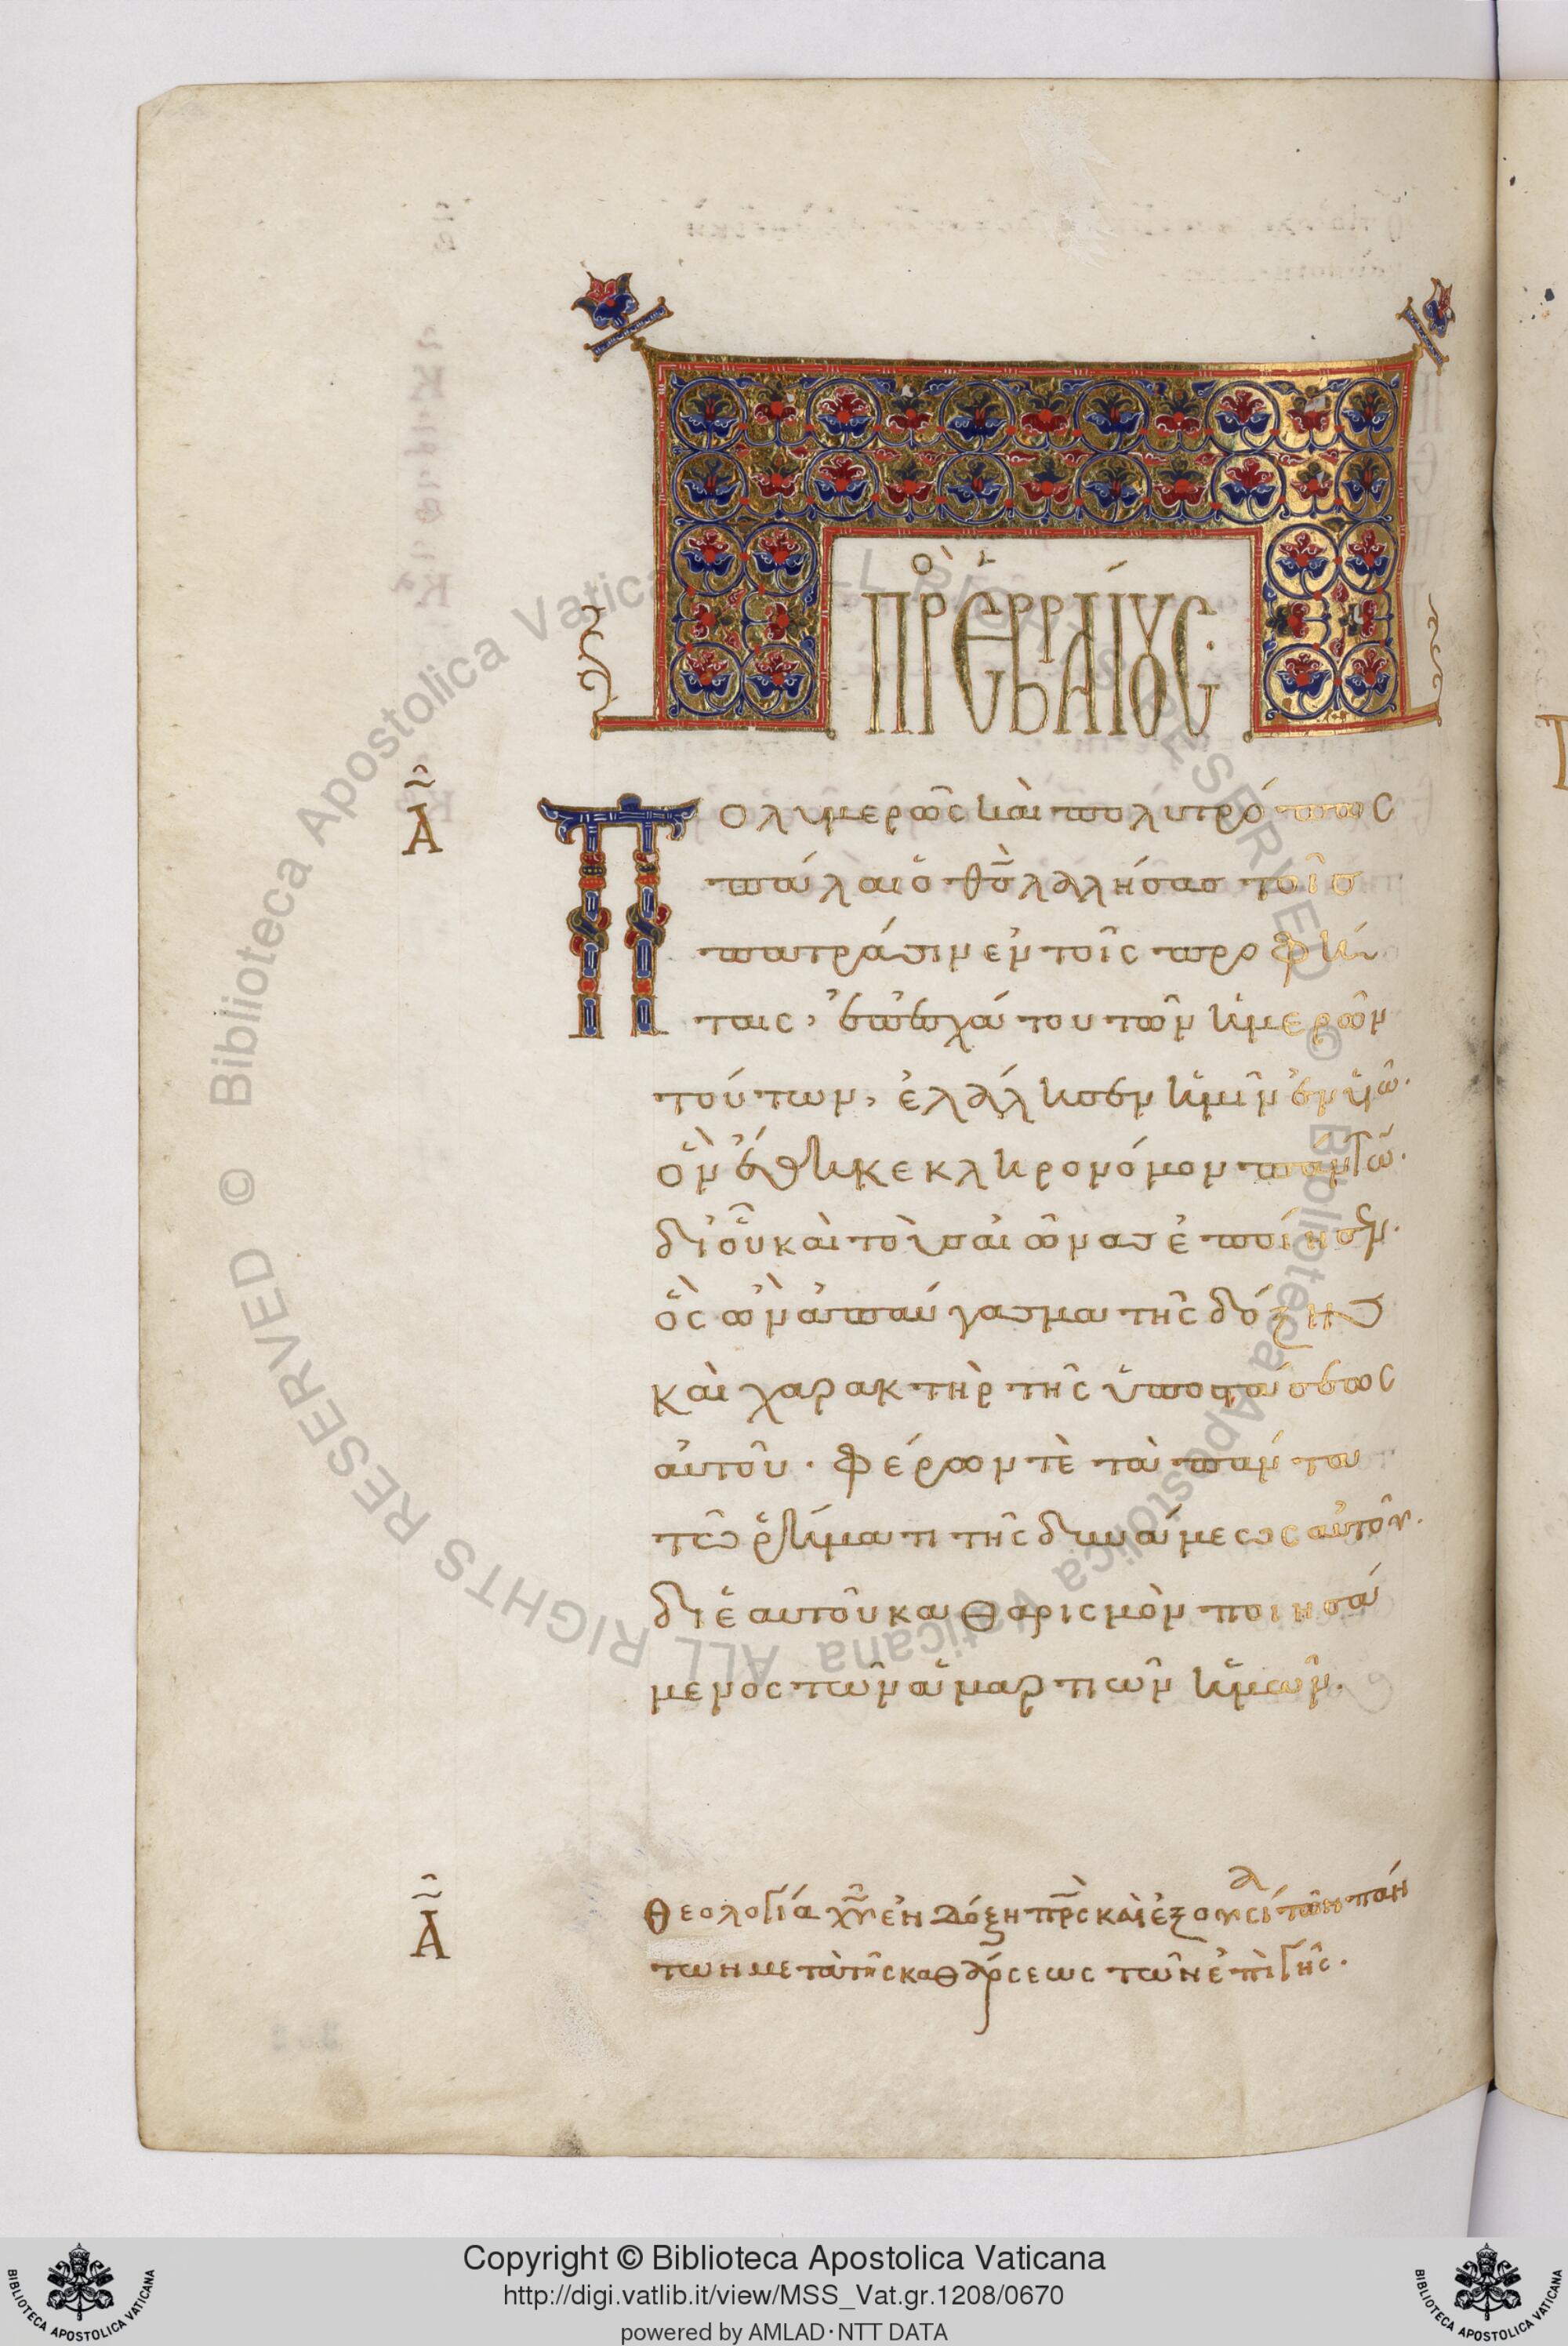 ΠΡῸΣ ἙΒΡΑΊΟΥΣ
Α
Πολυμερῶς καὶ πολυτρόπως
πάλαι ὁ θς̅ λαλήσας τοῖς
πατράσιν ἐν τοῖς προφή
ταις, ἐπ' ἐσχάτου τῶν ἡμερῶν
τούτων, ἐλάλησεν ἡμῖν ἐν υἱῶ·
ὃν ἔθηκε κληρονόμον πάντων·
δι' οὗ καὶ τοὺς αἰῶνας ἐποίησεν·
ὃς ὢν ἀπαύγασμα τῆς δόξης
καὶ χαρακτὴρ τῆς ὑποστάσεως
αὐτοῦ· φέρων τὲ τὰ πάντα
τῶ ῥήματι τῆς δυνάμεως αὐτοῦ·
δι' ἑαυτοῦ καθαρισμὸν ποιησά
μενος τῶν ἁμαρτιῶν ἡμῶν·
Α
Θεολογία χυ̅ ἐν δόξη πρ̅ς καὶ ἐξουσία τῶν πάν
των μετὰ τῆς καθάρσεως τῶν ἐπὶ γῆς·
© Biblioteca Apostolica Vaticana ALL RIGHTS RESERVED © Biblioteca Apostolica Vaticana ALL RIGHTS RESERVED
Copyright © Biblioteca Apostolica Vaticana
http://digi.vatlib.it/view/MSS_Vat.gr.1208/0670
powered by AMLAD·NTT DATA
BIBLIOTECA APOSTOLICA VATICANA
BIBLIOTECA APOSTOLICA VATICANA